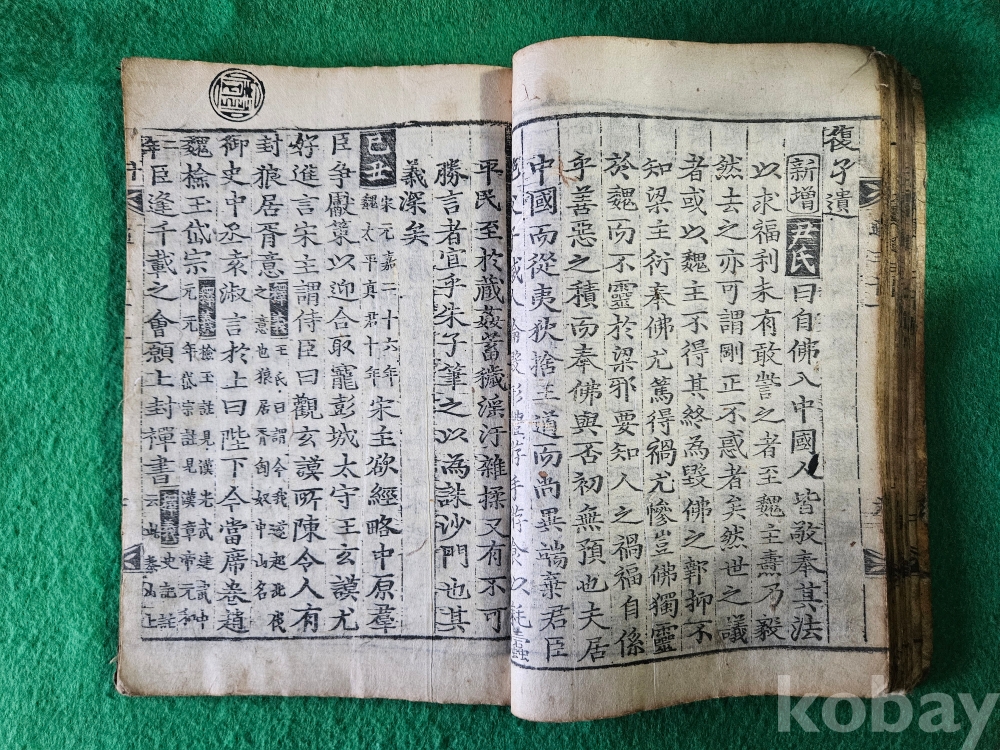 復子遺
新增尹氏曰自佛入中國人皆敬奉其法
以求福利未有敢訾之者至魏主燾乃毅
然去之亦可謂剛正不惑者矣然世之議
者或以魏主不得其終為毀佛之郭抑不
知梁主衍奉佛尤篤得禍尤慘豈佛獨靈
於魏而不靈於梁邪要知人之禍福自係
乎善惡之積而奉佛與否初無預也夫居
中國而從夷狄捨王道而尚異端棄君臣
平民至於藏姦蓄穢淫汙雜揉又有不可
勝言者宜乎朱子筆之以為誅沙門也其
義深矣
己丑宋元嘉二十六年魏太平真君十年宋主欲經略中原羣
臣爭獻策以迎合取寵彭城太守王玄謨尤
好進言宋主謂侍臣曰觀玄謨所陳令人有
封狼居胥意釋義王氏曰謂令我遠起北伐之意也狼居胥匈奴中山名
御史中丞袁淑言於上曰陛下今當席卷趙
魏檢王岱宗釋義檢玉註見漢光武建武中元元年岱宗註見漢章帝元和二年
臣逢千載之會願上封禪書釋義
kobay